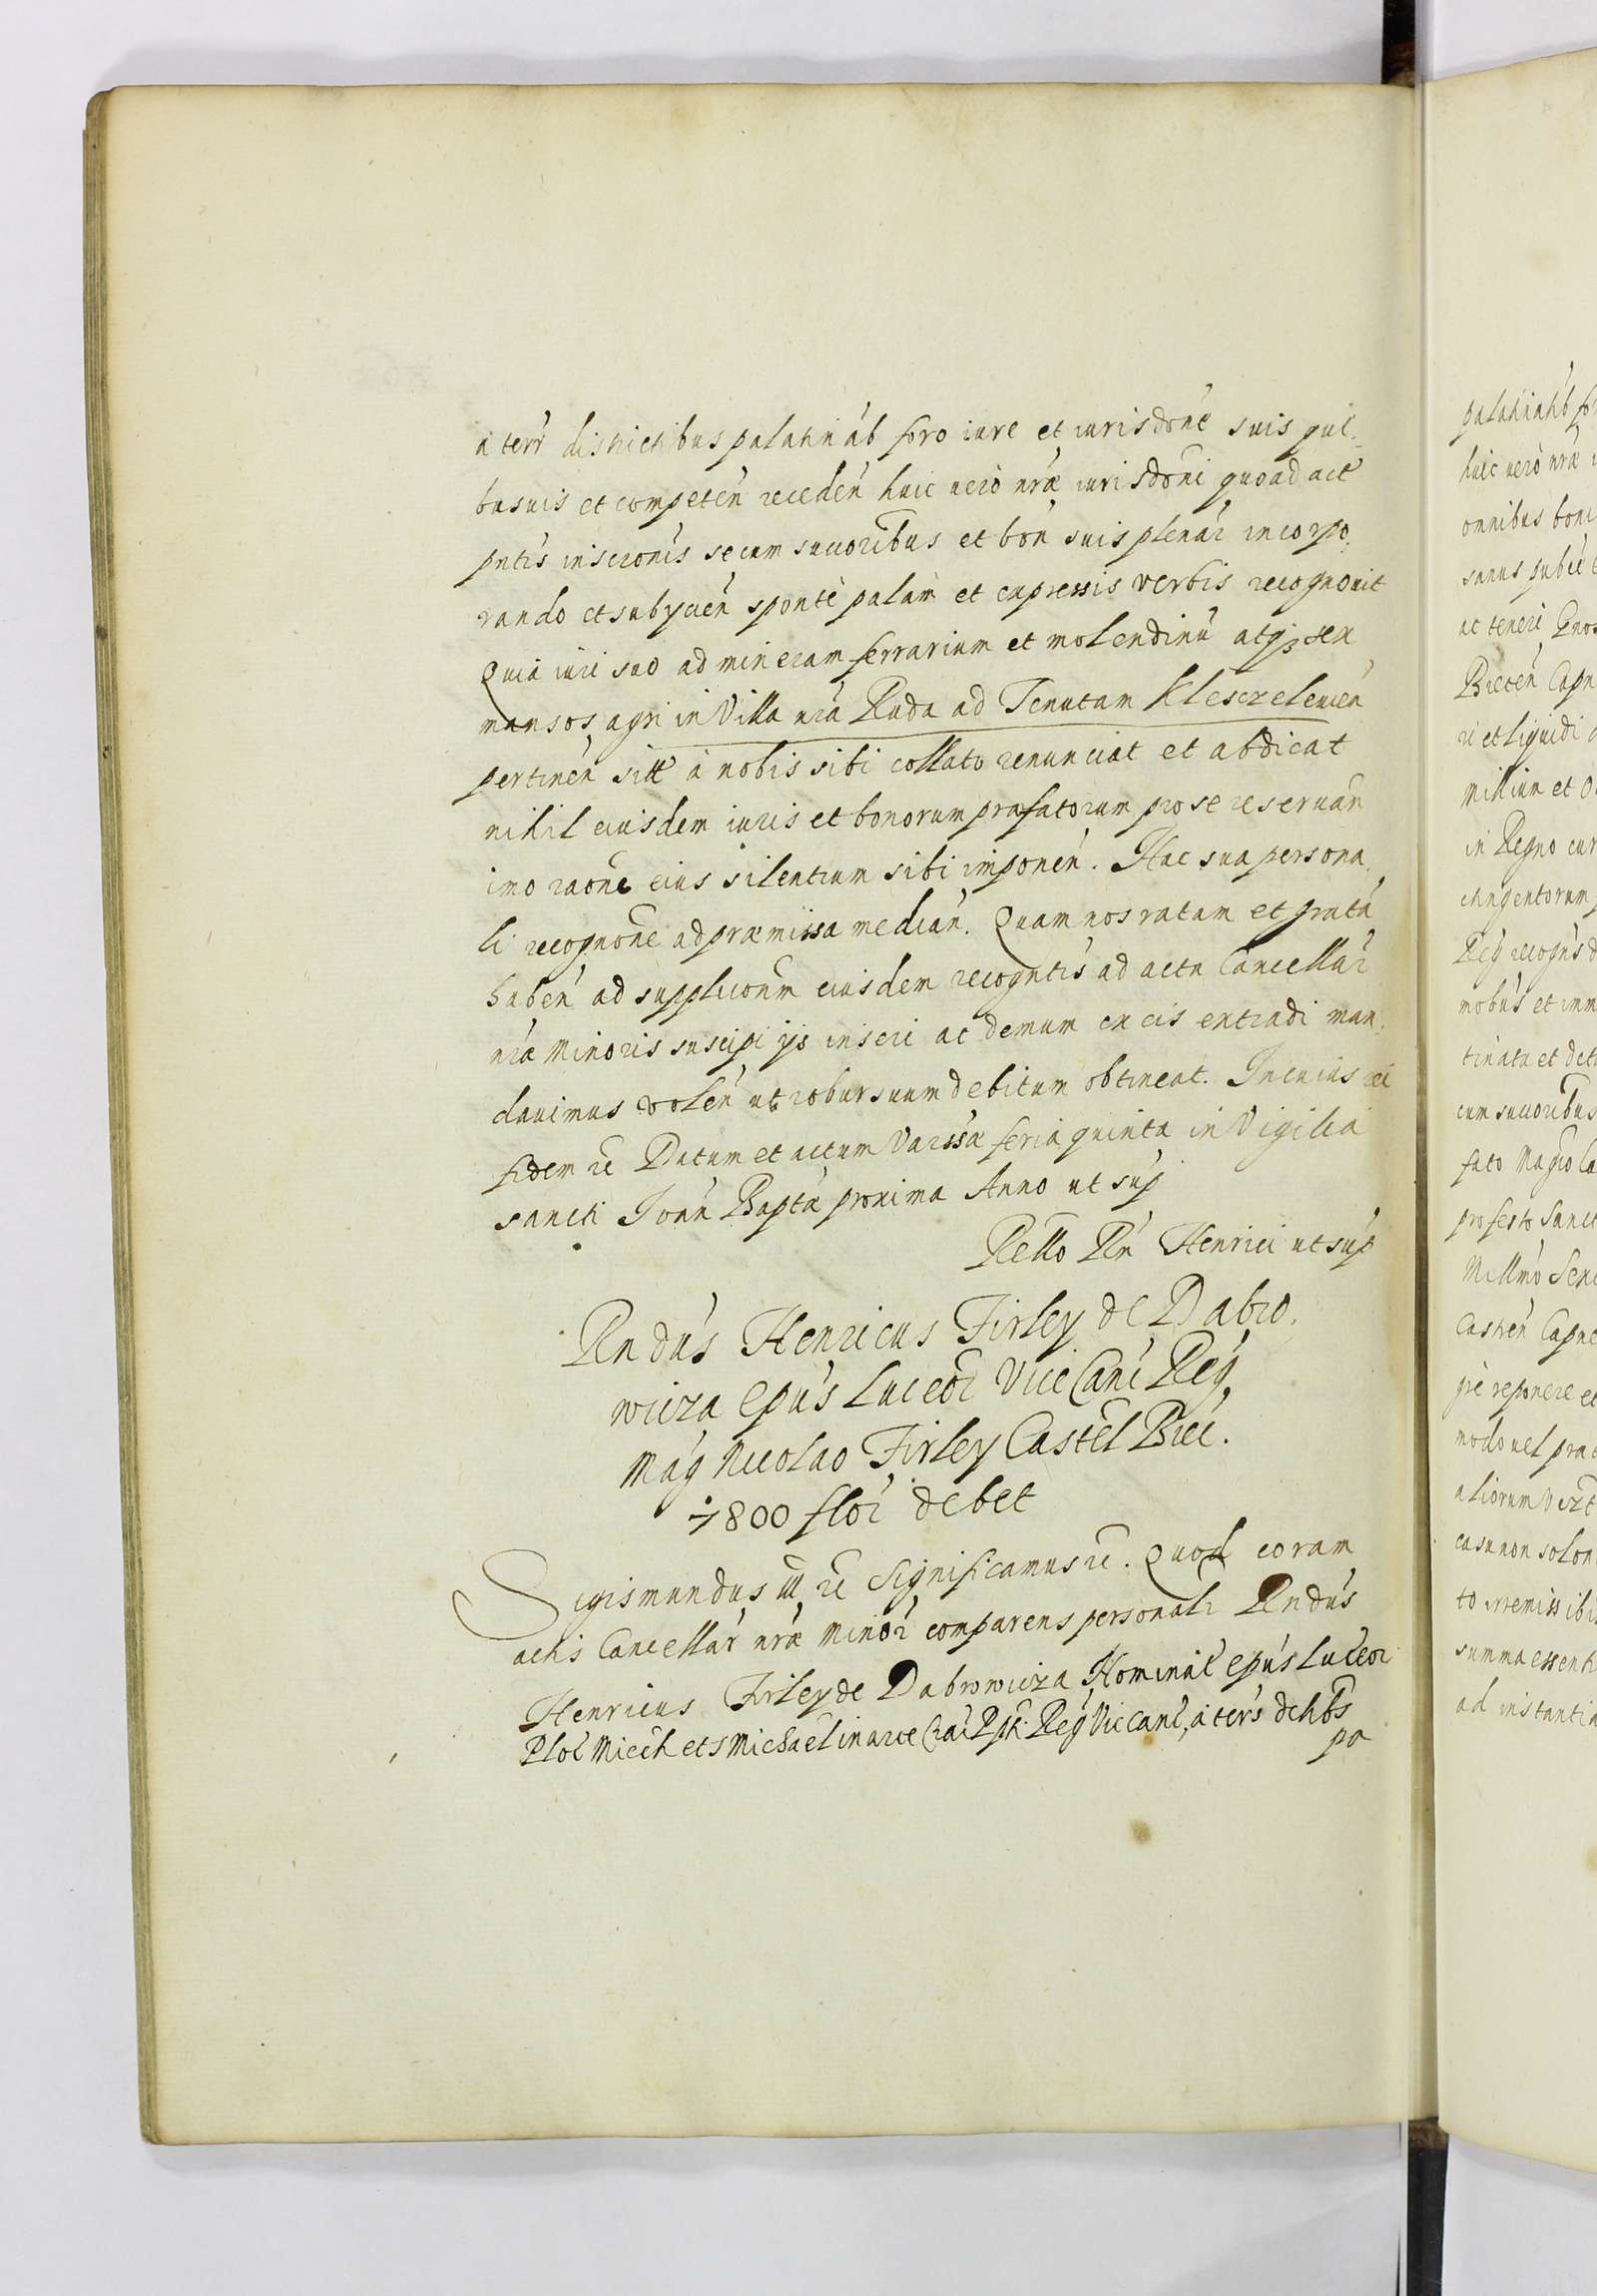 a terr districtibus palatin ab foro iure et iurisdone suis qui-
busuis et competen receden huic vero nrae iurisdoni quoad act
pntis inscronis se cum succoribus et bon suis plenar incorpo-
rando et subycien sponte palam et expressis verbis recognouit
Quia iuri suo ad mineram ferrarium et molendinu atqz sex
mansos agri in Villa nra Ruda ad Tenutam Kleszczelewien
pertinen sitt a nobis sibi collato renunciat et abdicat
nihil eiusdem iuris et bonorum prafatorum pro se reseruan
imo raone eius silentium sibi imponen. Hac sua persona
li recognone ad praemissa median. Quam nos ratam et grata
haben ad supplicionm eiusdem recogntis ad acta Cancellar
nrae Minoris suscipi ijs inseri ac demum ex eis extradi man
dauimus volen ut robur suum debitum obtineat. In cuius rei
fidem rc Datum et actum Varssae feria quinta in Vigilia
sancti Joan Bapta proxima Anno ut sup
Rello Rn Henrici ut sup
Rndus Henricus Firley de Dabro-
wicza Epus Luceor ViceCanc Reg
Mag Nicolao Firley Castel Biec.
7800 flor debet
Sigismundus III rc Significamus rc. Quod coram
actis Cancellar nrae Minor comparens personalr Rndus
Henricus Firley de Dabrowicza Nominat Epus Luceor
Ploc Miech et S Michael in arce Crac Ppt. Reg Viccanc, a ters dctibs
pa
palatinatib for
huic vero nrae
omnibus boni
sanus subiet
ac teneri
Biecen Capn
ri et liquidi
Millium et
in Regno cur
dringentorum
Reg recogns
mobus et imm
tinata et
cum succoribus
fato Magco Ca
profesto Sanct
Millmo
Castren Capne
re reponere et
modo vel
aliorum
casu non
to irremissibi
summa essenti
ad instantia